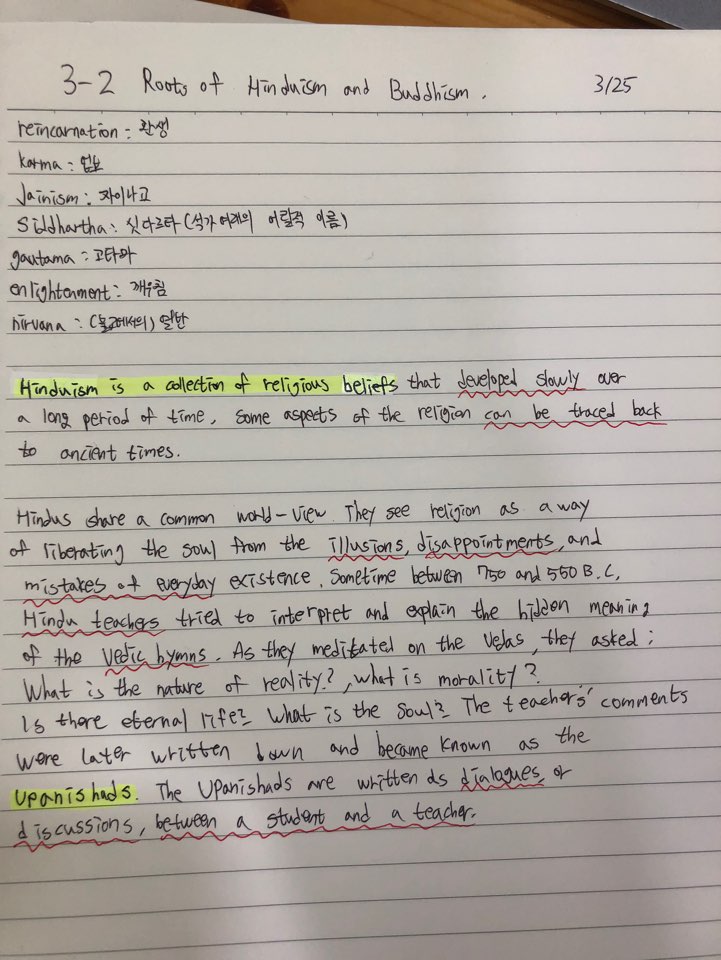 3-2 Roots of Hinduism and Buddhism. 3/25
reincarnation : 환생
karma : 업보
Jainism : 자이나교
Siddhartha : 싯다르타 (석가여래의 어릴적 이름)
gautama : 고타마
enlightenment : 깨우침
nirvana : (불교에서의) 열반
Hinduism is a collection of religious beliefs that developed slowly over
a long period of time, some aspects of the religion can be traced back
to ancient times.
Hindus share a common world-view. They see religion as a way
of liberating the soul from the illusions, disappointments, and
mistakes of everyday existence. Sometime between 750 and 550 B.C,
Hindu teachers tried to interpret and explain the hidden meaning
of the Vedic hymns. As they meditated on the Vedas, they asked :
What is the nature of reality?, what is morality?
Is there eternal life? What is the soul? The teachers' comments
were later written down and became known as the
Upanishads. The Upanishads are written as dialogues, or
discussions, between a student and a teacher.